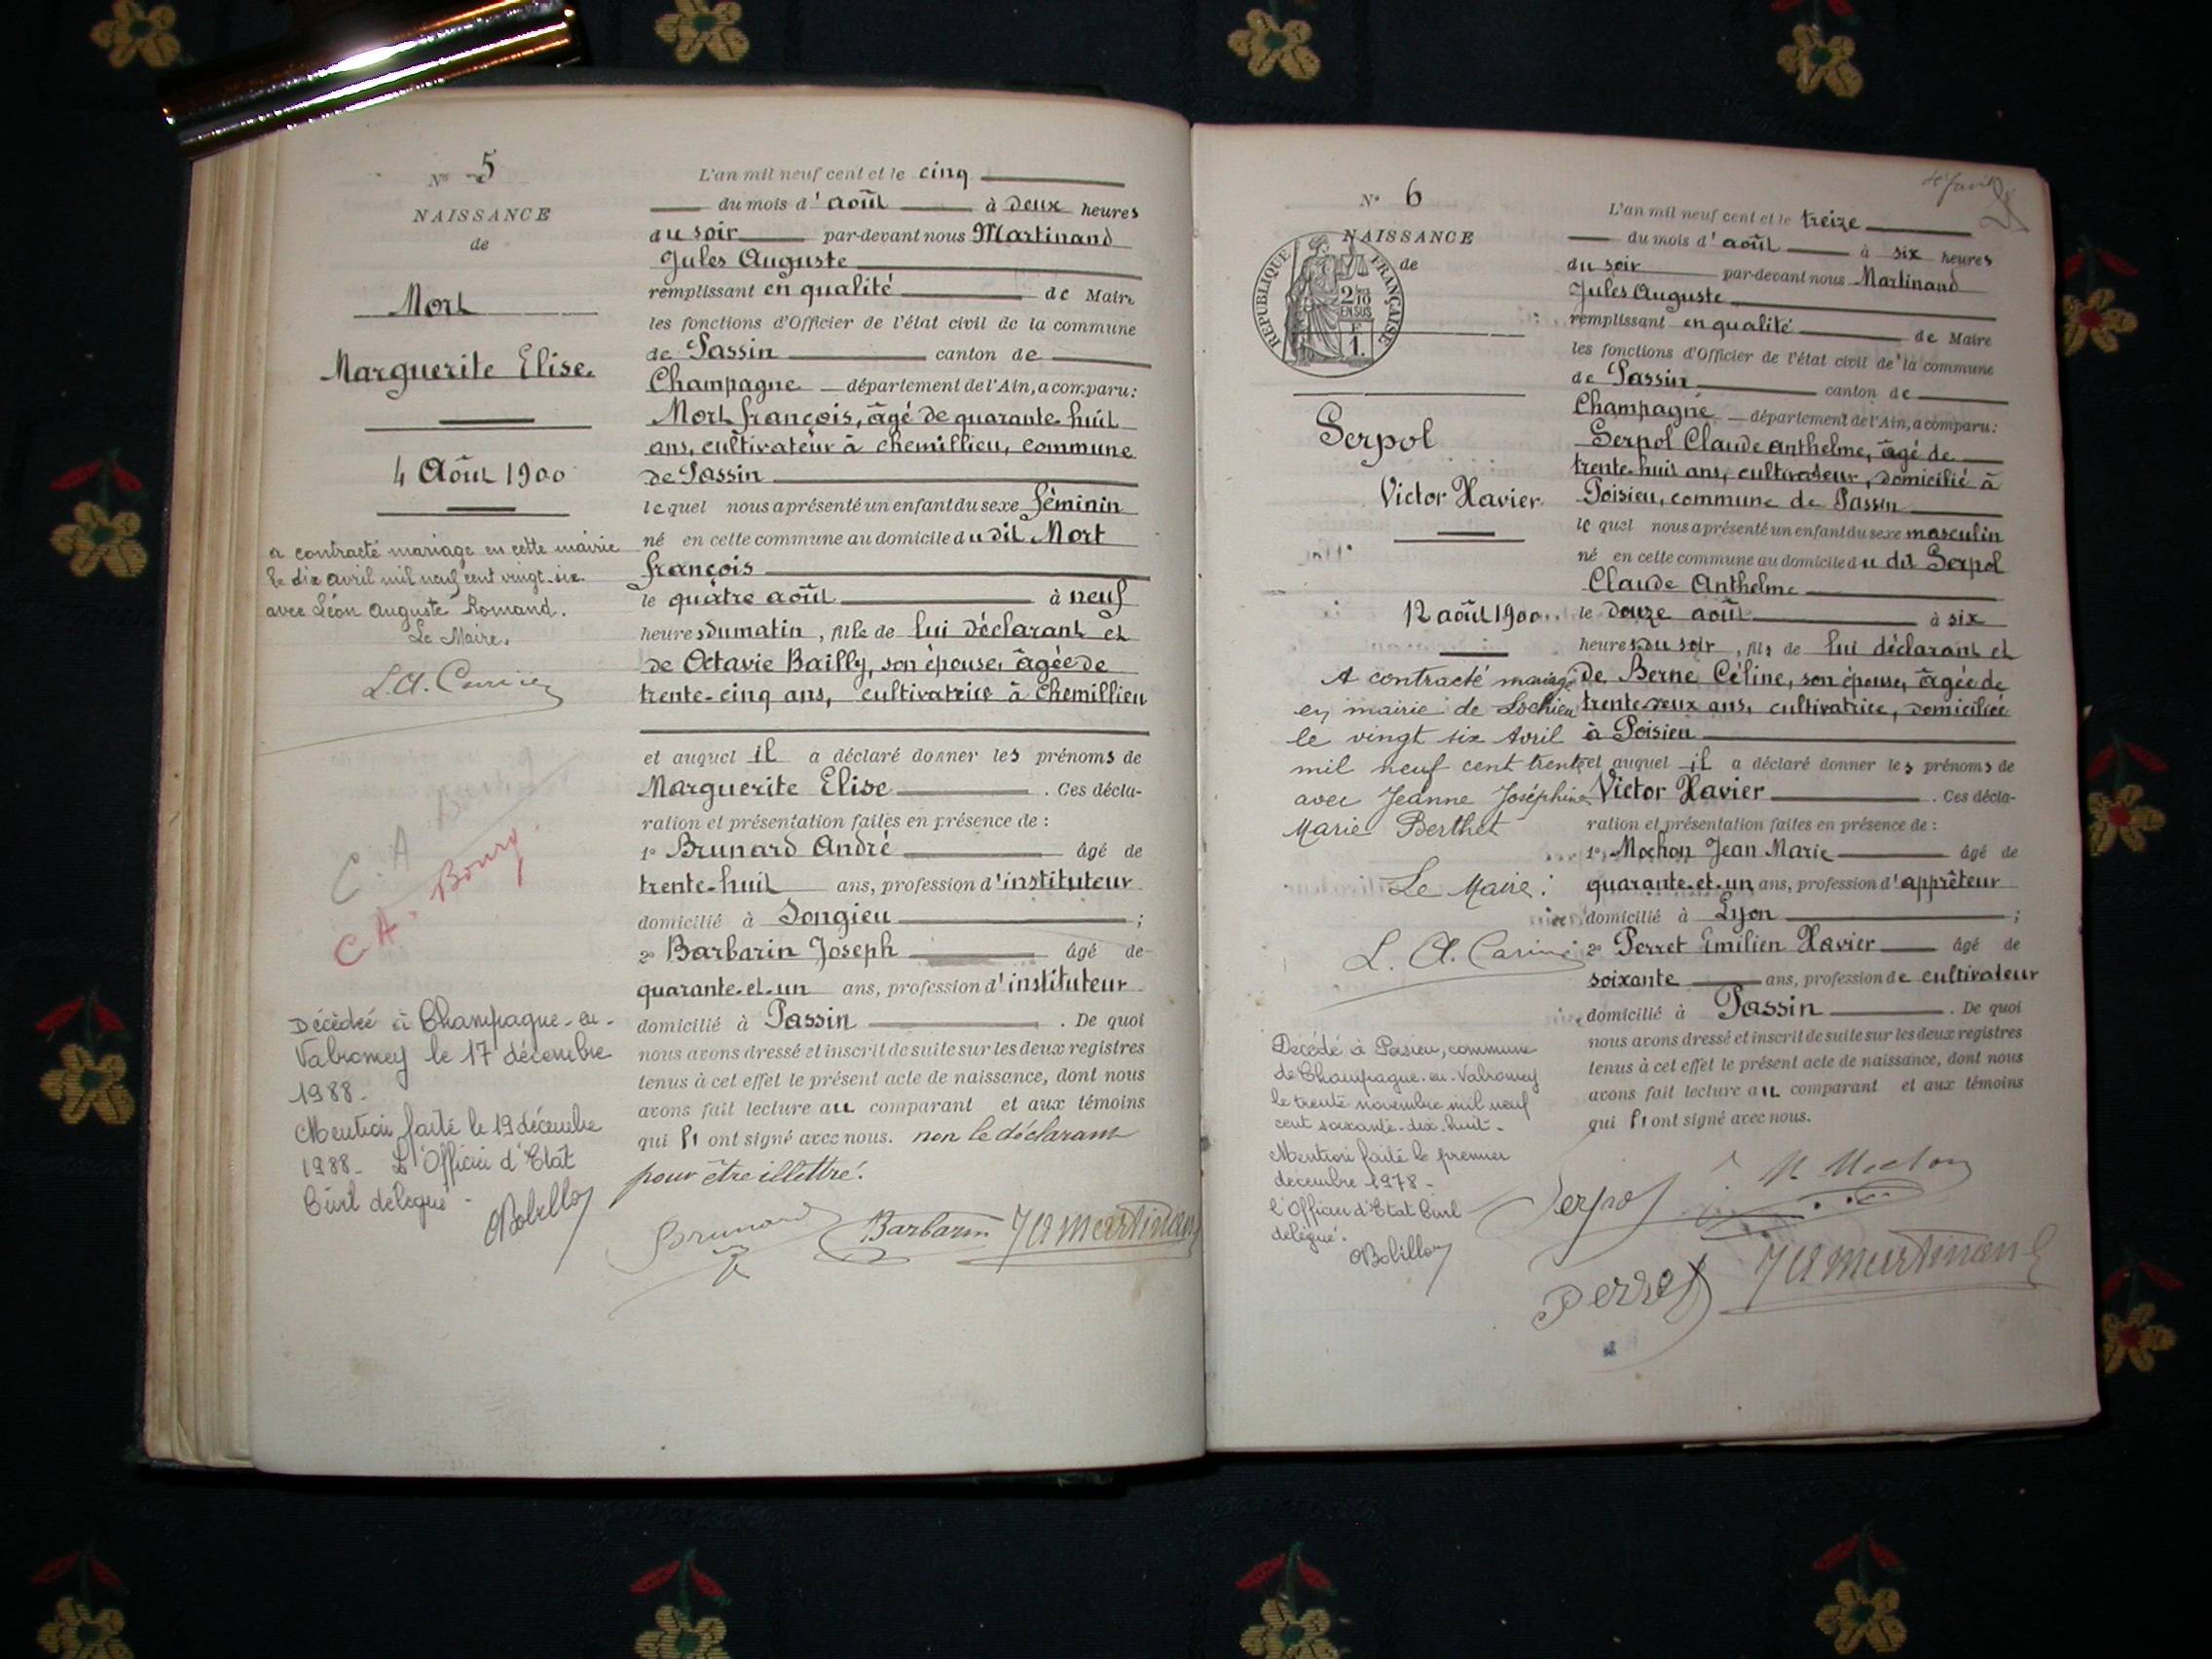 N° 5
NAISSANCE
de
Mort
Marguerite Elise.
4 Août 1900
a contracté mariage en cette mairie
le dix avril mil neuf cent vingt-six
avec Léon Auguste Romand.
Le Maire.
C. A. Bourg
C. A. Bourg.
Décédée à Champagne-en-
Valromey le 17 décembre
1988.
Mention faite le 19 décembre
1988 - L'Officier d'Etat
Civil délégué -
L'an mil neuf cent et le cinq
du mois d'août à deux heures
du soir par-devant nous Martinand
Jules Auguste
remplissant en qualité de Maire
les fonctions d'Officier de l'état civil de la commune
de Passin canton de
Champagne département de l'Ain, a comparu:
Mort françois, âgé de quarante-huit
ans, cultivateur à chemillieu, commune
de Passin
lequel nous a présenté un enfant du sexe féminin
né en cette commune au domicile du dit Mort
françois
le quatre août à neuf
heures du matin, fille de lui déclarant et
de Octavie Bailly, son épouse, âgée de
trente-cinq ans, cultivatrice à Chemillieu
et auquel il a déclaré donner les prénoms de
Marguerite Elise. Ces décla-
ration et présentation faites en présence de:
1° Brunard André âgé de
trente-huit ans, profession d'instituteur
domicilié à Songieu;
2° Barbarin Joseph âgé de
quarante-et-un ans, profession d'instituteur
domicilié à Passin. De quoi
nous avons dressé et inscrit de suite sur les deux registres
tenus à cet effet le présent acte de naissance, dont nous
avons fait lecture au comparant et aux témoins
qui l'ont signé avec nous. non le déclarant
pour être illettré.
Brunard Barbarin J A Martinand
N° 6
NAISSANCE
de
REPUBLIQUE FRANÇAISE
2/10
EN SUS
1.
Serpol
Victor Xavier.
12 août 1900
A contracté mariage
en mairie de Lochieu
le vingt six Avril
mil neuf cent trente
avec Jeanne Joséphine
Marie Berthet
Le Maire:
Décédé à Poisieu, commune
de Champagne-en-Valromey
le trente novembre mil neuf
cent soixante-dix-huit.
Mention faite le premier
décembre 1978 -
l'Officier d'Etat Civil
délégué.
L'an mil neuf cent et le treize
du mois d'août à six heures
du soir par-devant nous Martinand
Jules Auguste
remplissant en qualité de Maire
les fonctions d'Officier de l'état civil de la commune
de Passin canton de
Champagne département de l'Ain, a comparu:
Serpol Claude anthelme, âgé de
trente-huit ans, cultivateur, domicilié à
Poisieu, commune de Passin
lequel nous a présenté un enfant du sexe masculin
né en cette commune au domicile du dit Serpol
Claude Anthelme
le douze août à six
heures du soir, fils de lui déclarant et
de Berne Céline, son épouse, âgée de
trente-deux ans, cultivatrice, domiciliée
à Poisieu
et auquel il a déclaré donner les prénoms de
Victor Xavier. Ces décla-
ration et présentation faites en présence de:
1° Mochon Jean Marie âgé de
quarante-et-un ans, profession d'apprêteur
domicilié à Lyon;
2° Perret Emilien Xavier âgé de
soixante ans, profession de cultivateur
domicilié à Passin. De quoi
nous avons dressé et inscrit de suite sur les deux registres
tenus à cet effet le présent acte de naissance, dont nous
avons fait lecture au comparant et aux témoins
qui l'ont signé avec nous.
Serpol Mochon
Perret J A Martinand